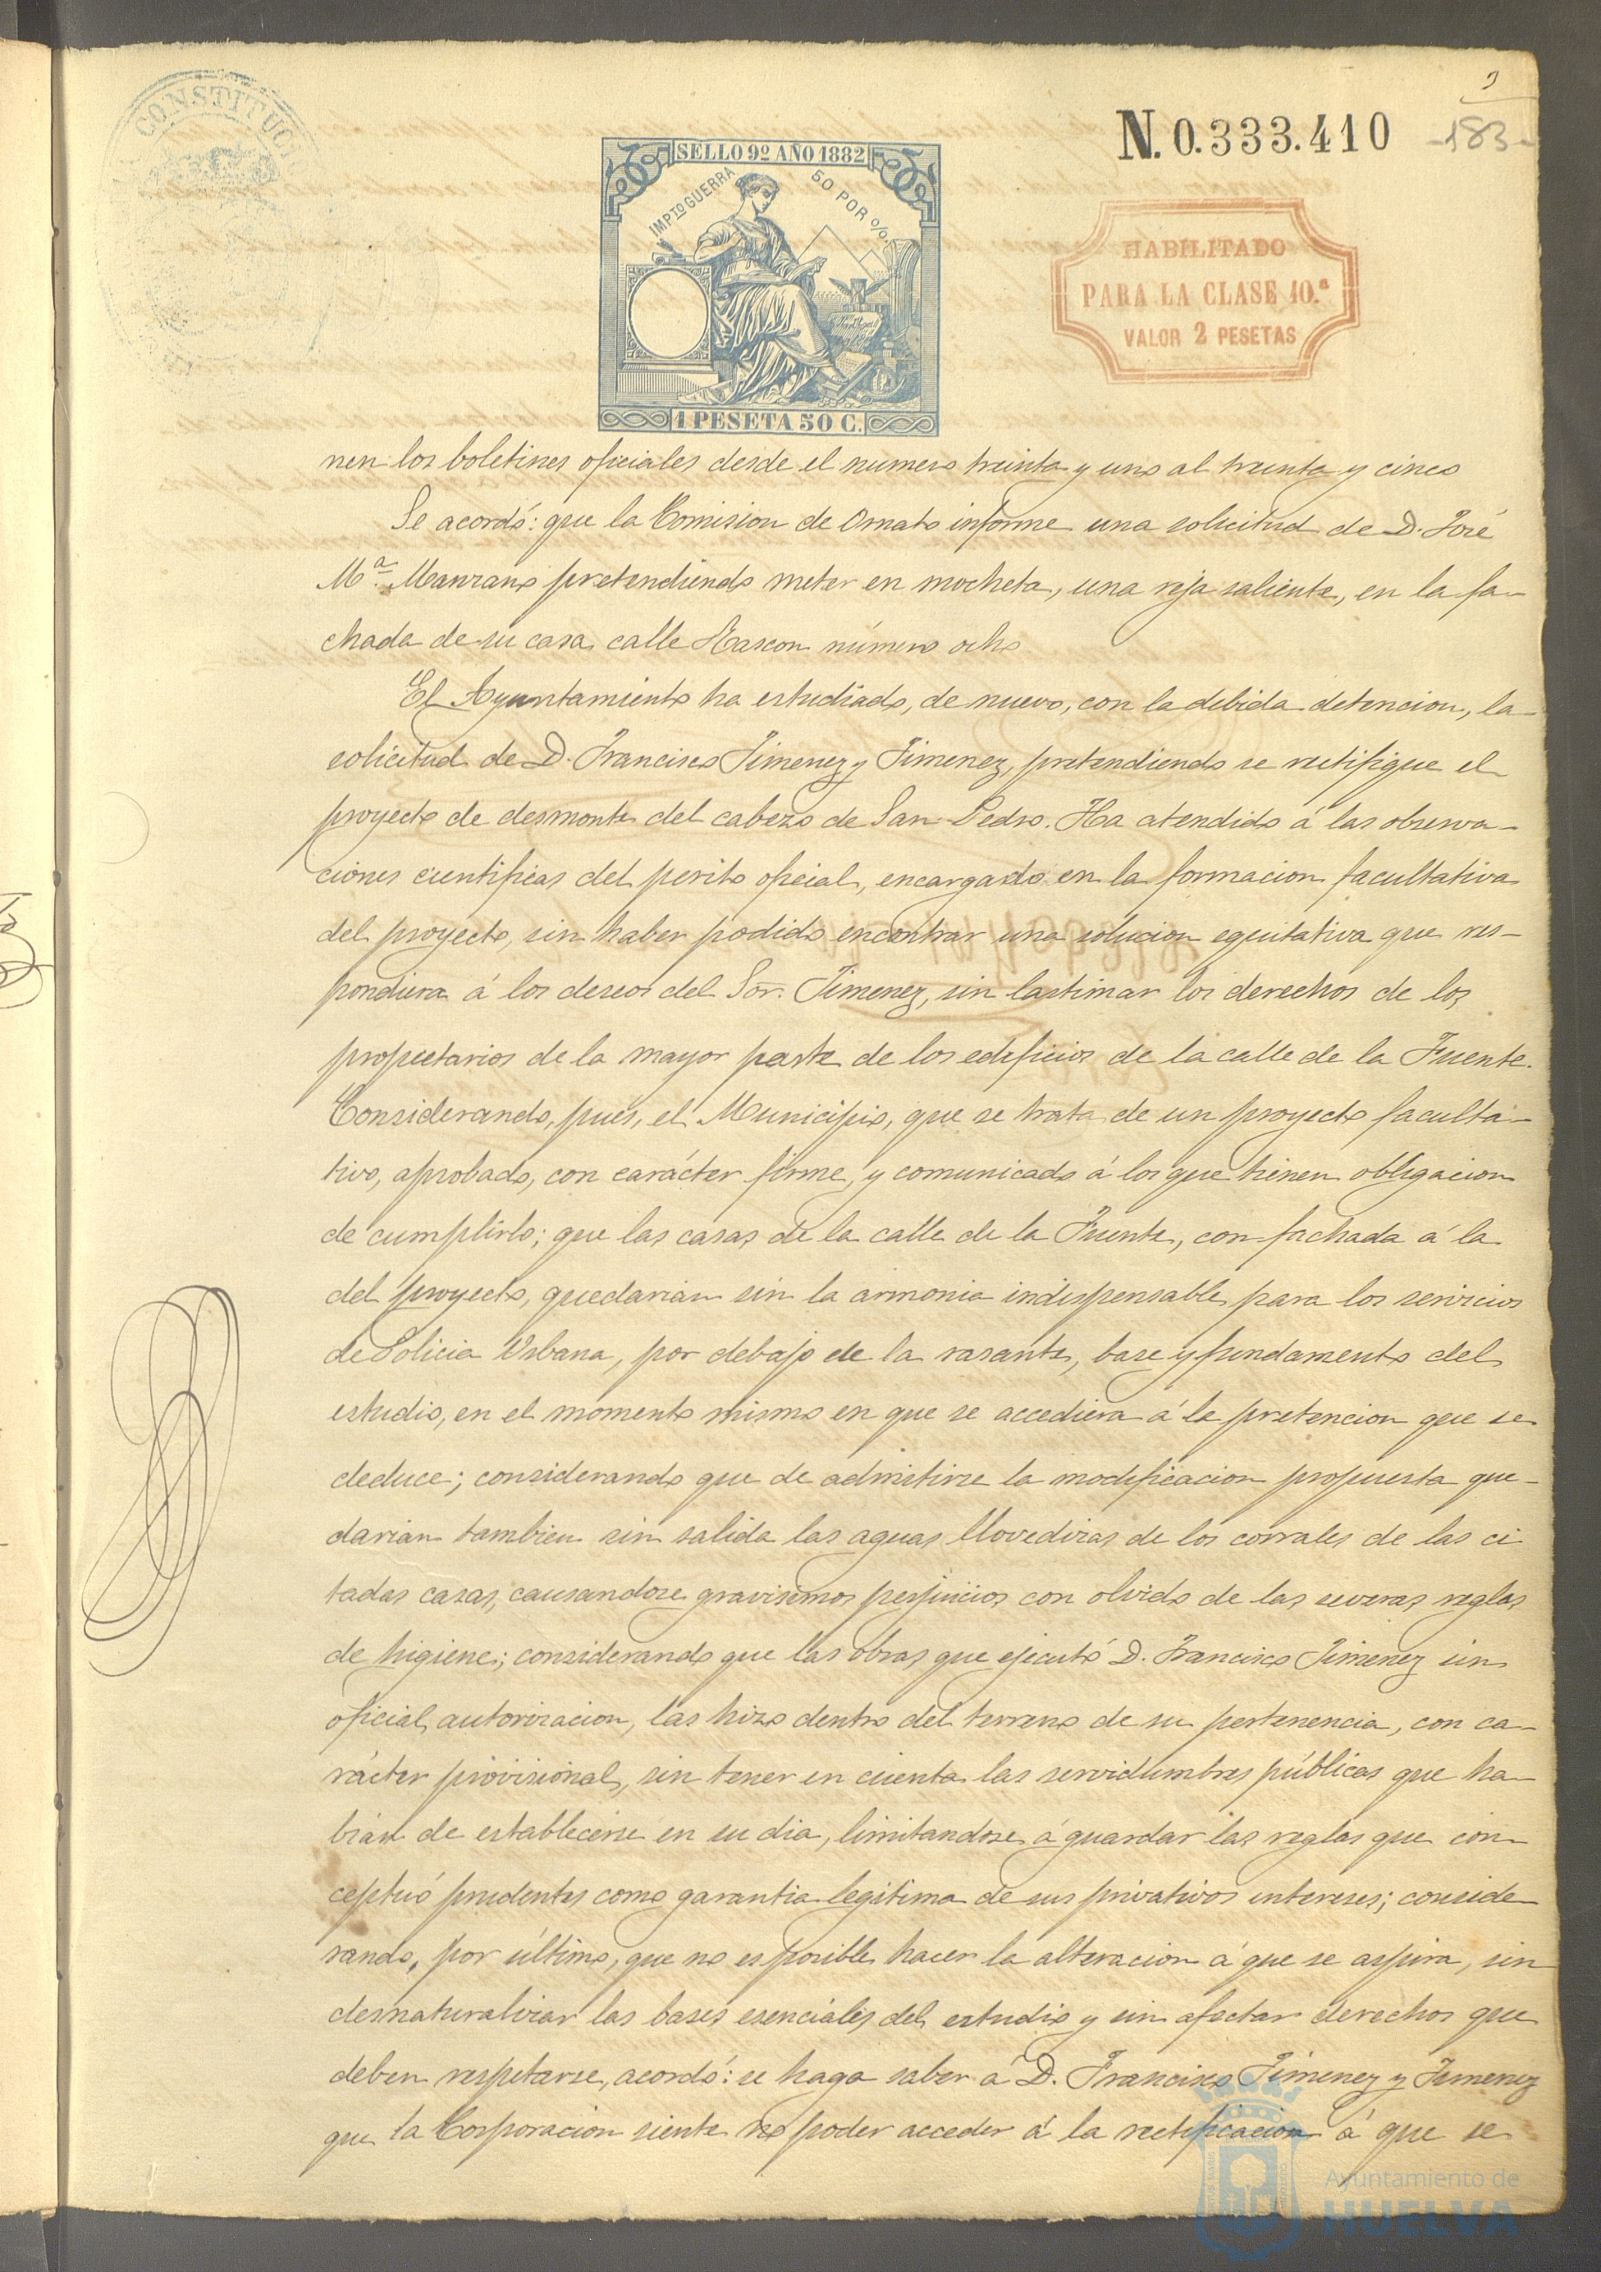 CONSTITUCIO
9
N. 0.333.410
-183-
SELLO 9º AÑO 1882
IMPTO GUERRA 50 POR 0/0.
HABILITADO
PARA LA CLASE 10.ª
VALOR 2 PESETAS
1 PESETA 50 C.
nen los boletines oficiales desde el numero treinta y uno al treinta y cinco
Se acordó: que la Comision de Ornato informe una solicitud de D. José
Mª Manzano pretendiendo meter en mocheta, una reja saliente, en la fa-
chada de su casa calle Rascon número ocho
El Ayuntamiento ha estudiado, de nuevo, con la debida detencion, la
solicitud de D. Francisco Jimenez y Jimenez, pretendiendo se rectifique el
proyecto de desmonte del cabezo de San Pedro. Ha atendido á las observa-
ciones cientificas del perito oficial, encargado en la formacion facultativa
del proyecto, sin haber podido encontrar una solucion equitativa que res-
pondiera á los deseos del Sor. Jimenez, sin lastimar los derechos de los
propietarios de la mayor parte de los edificios de la calle de la Fuente.
Considerando, pues, el Municipio, que se trata de un proyecto faculta-
tivo, aprobado, con carácter firme, y comunicado á los que tienen obligacion
de cumplirlo; que las casas de la calle de la Fuente, con fachada á la
del proyecto, quedarian sin la armonia indispensable para los servicios
de Policia Urbana, por debajo de la rasante, base y fundamento del
estudio, en el momento mismo en que se accediera á la pretencion que se
deduce; considerando que de admitirse la modificacion propuesta que-
darian tambien sin salida las aguas llovedizas de los corrales de las ci
tadas casas, causandose gravisimos perjuicios con olvido de las severas reglas
de higiene; considerando que las obras que ejecutó D. Francisco Jimenez sin
oficial autorizacion, las hizo dentro del terreno de su pertenencia, con ca-
rácter provisional, sin tener en cuenta las servidumbres públicas que ha-
bian de establecerse en su dia, limitandose á guardar las reglas que con-
ceptuó prudentes como garantia legitima de sus privativos intereses; conside-
rando, por último, que no es posible hacer la alteracion á que se aspira, sin
desnaturalizar las bases esenciales del estudio y sin afectar derechos que
deben respetarse, acordó: se haga saber á D. Francisco Jimenez y Jimenez
que la Corporacion siente no poder acceder á la rectificacion á que se
Ayuntamiento de
HUELVA